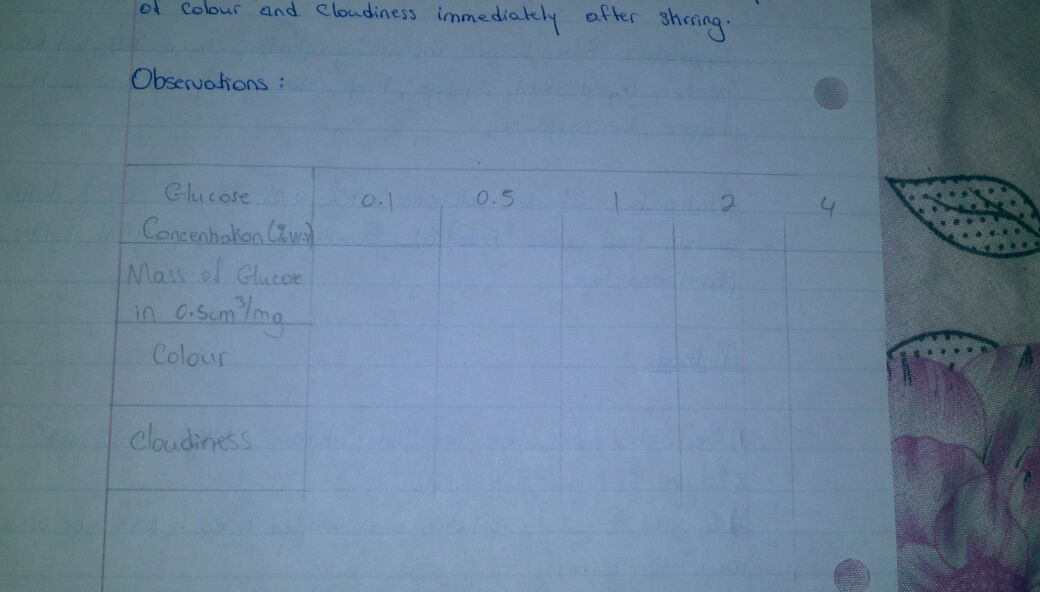 of colour and cloudiness immediately after stirring.
Observations :
Glucose 0.1 0.5 1 2 4
Concentration (% w.v)
Mass of Glucose
in 0.5cm³/mg
Colour
Cloudiness